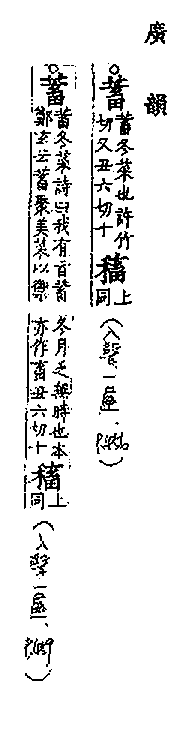 廣韻
○蓄蓄冬菜也許竹切又丑六切十稸上同(入聲一屋、P.456)
○蓄蓄冬菜詩曰我有旨蓄鄭玄云蓄聚美菜以禦冬月乏無時也本亦作畜丑六切十稸上同(入聲一屋、P.459)